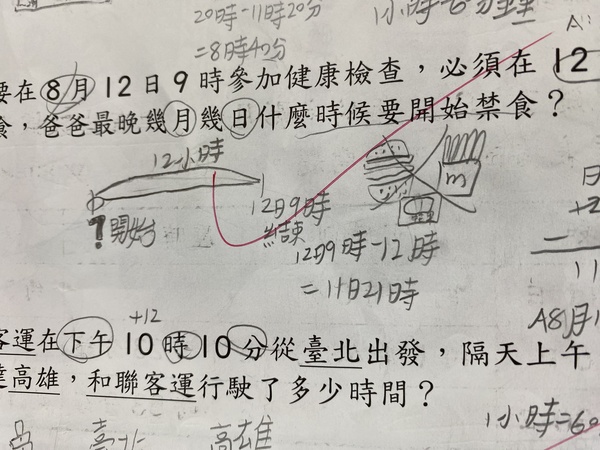 20時-11時20分
=8時40分
1小時6分鐘
A:
要在8月12日9時參加健康檢查，必須在12
食，爸爸最晚幾月幾日什麼時候要開始禁食？
12小時
m
?開始
12日9時
結束
12日9時-12時
=11日21時
日
+2
11
A8月1
+12
客運在下午10時10分從臺北出發，隔天上午
達高雄，和聯客運行駛了多少時間？
1小時=60
臺北 高雄